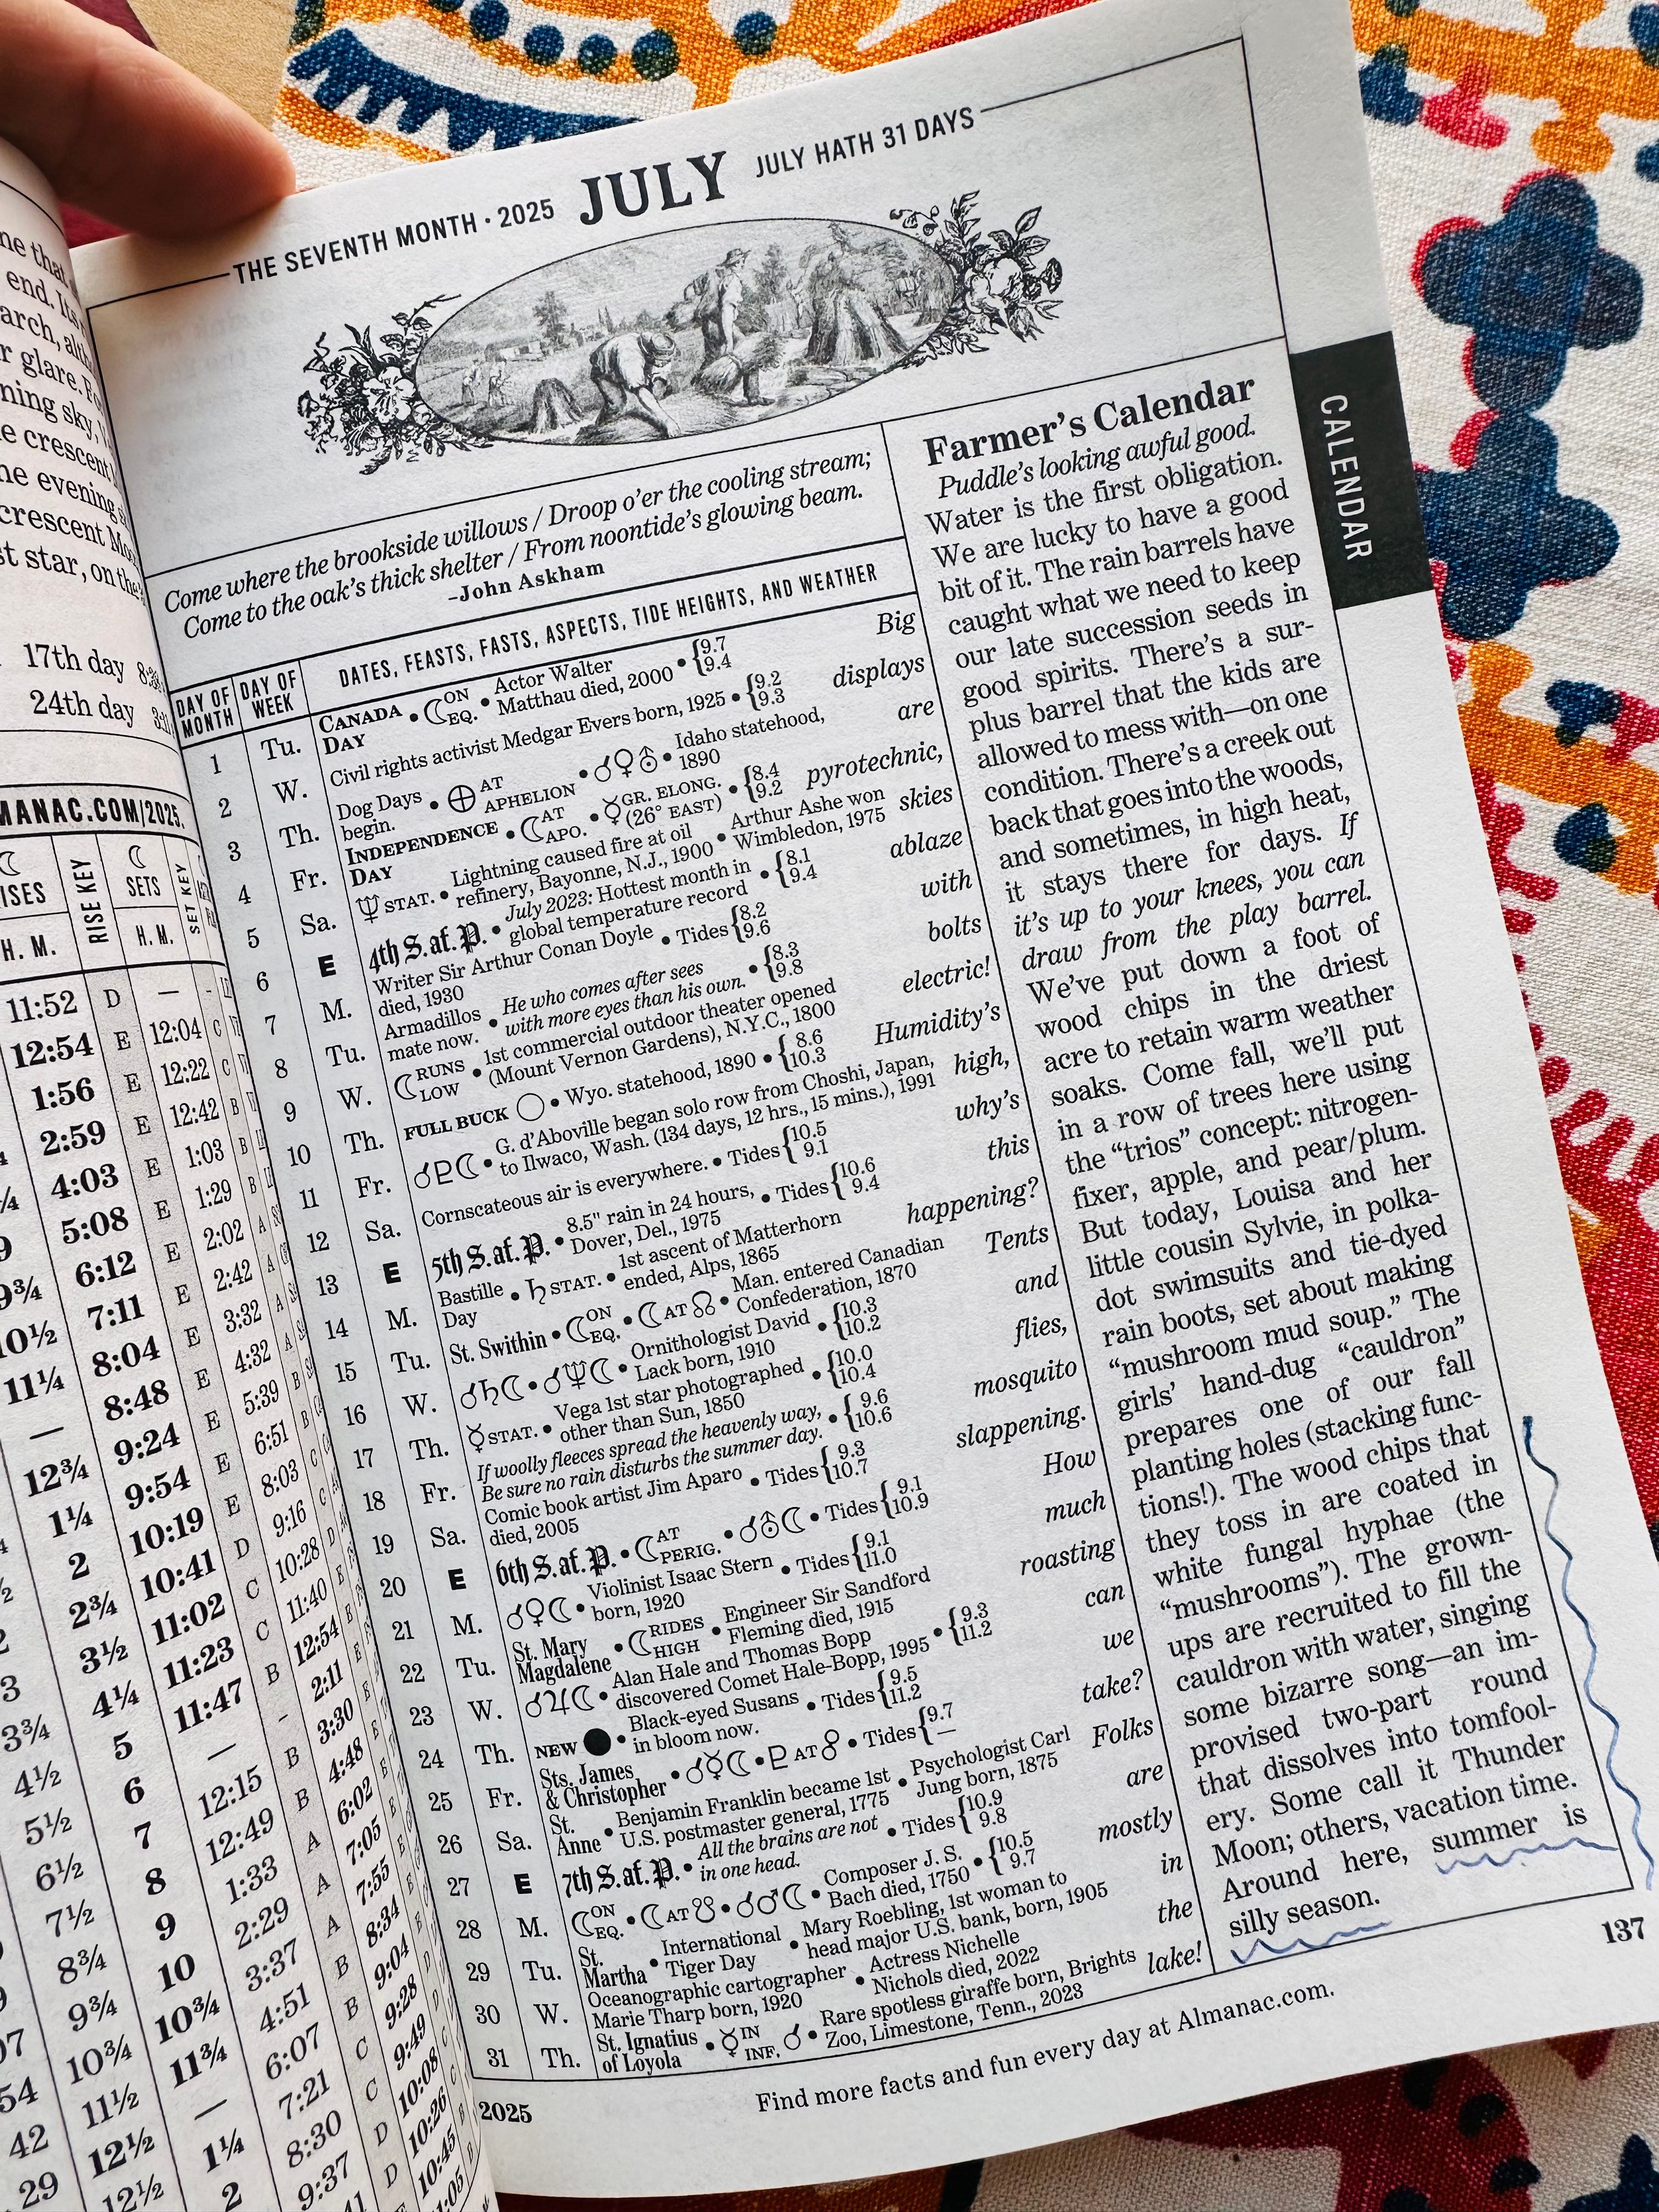 THE SEVENTH MONTH · 2025 JULY JULY HATH 31 DAYS
Come where the brookside willows / Droop o'er the cooling stream;
Come to the oak's thick shelter / From noontide's glowing beam.
–John Askham
DAY OF MONTH DAY OF WEEK DATES, FEASTS, FASTS, ASPECTS, TIDE HEIGHTS, AND WEATHER
1 Tu. CANADA DAY • ☾ ON EQ. • Actor Walter Matthau died, 2000 • {9.7 9.4 Big
2 W. Civil rights activist Medgar Evers born, 1925 • {9.2 9.3 displays
3 Th. Dog Days begin. • ⊕ AT APHELION • ☌♀⛢ • Idaho statehood, 1890 are
4 Fr. INDEPENDENCE DAY • ☾ AT APO. • ☿ GR. ELONG. (26° EAST) • {8.4 9.2 pyrotechnic,
5 Sa. ♆ STAT. • Lightning caused fire at oil refinery, Bayonne, N.J., 1900 • Arthur Ashe won Wimbledon, 1975 skies
6 E 4th S. af. P. • July 2023: Hottest month in global temperature record • {8.1 9.4 ablaze
with
7 M. Writer Sir Arthur Conan Doyle died, 1930 • Tides {8.2 9.6 bolts
8 Tu. Armadillos mate now. • He who comes after sees with more eyes than his own. • {8.3 9.8 electric!
9 W. ☾ RUNS LOW • 1st commercial outdoor theater opened (Mount Vernon Gardens), N.Y.C., 1800 Humidity's
10 Th. FULL BUCK ○ • Wyo. statehood, 1890 • {8.6 10.3 high,
11 Fr. ☌♇☾ • G. d'Aboville began solo row from Choshi, Japan, to Ilwaco, Wash. (134 days, 12 hrs., 15 mins.), 1991 why's
12 Sa. Cornscateous air is everywhere. • Tides {10.5 9.1 this
13 E 5th S. af. P. • 8.5" rain in 24 hours, Dover, Del., 1975 • Tides {10.6 9.4 happening?
14 M. Bastille Day • ♄ STAT. • 1st ascent of Matterhorn ended, Alps, 1865 Tents
15 Tu. St. Swithin • ☾ ON EQ. • ☾ AT ☊ • Man. entered Canadian Confederation, 1870 and
16 W. ☌♄☾ • ☌♆☾ • Ornithologist David Lack born, 1910 • {10.3 10.2 flies,
17 Th. ☿ STAT. • Vega 1st star photographed other than Sun, 1850 • {10.0 10.4 mosquito
18 Fr. If woolly fleeces spread the heavenly way, Be sure no rain disturbs the summer day. • {9.6 10.6 slappening.
19 Sa. Comic book artist Jim Aparo died, 2005 • Tides {9.3 10.7 How
20 E 6th S. af. P. • ☾ AT PERIG. • ☌⛢☾ • Tides {9.1 10.9 much
21 M. ☌♀☾ • Violinist Isaac Stern born, 1920 • Tides {9.1 11.0 roasting
22 Tu. St. Mary Magdalene • ☾ RIDES HIGH • Engineer Sir Sandford Fleming died, 1915 can
23 W. ☌♃☾ • Alan Hale and Thomas Bopp discovered Comet Hale-Bopp, 1995 • {9.3 11.2 we
24 Th. NEW ● • Black-eyed Susans in bloom now. • Tides {9.5 11.2 take?
25 Fr. Sts. James & Christopher • ☌☿☾ • ♇ AT ☍ • Tides {9.7 — Folks
26 Sa. St. Anne • Benjamin Franklin became 1st U.S. postmaster general, 1775 • Psychologist Carl Jung born, 1875 are
27 E 7th S. af. P. • All the brains are not in one head. • Tides {10.9 9.8 mostly
28 M. ☾ ON EQ. • ☾ AT ☋ • ☌♂☾ • Composer J. S. Bach died, 1750 • {10.5 9.7 in
29 Tu. St. Martha • International Tiger Day • Mary Roebling, 1st woman to head major U.S. bank, born, 1905 the
30 W. Oceanographic cartographer Marie Tharp born, 1920 • Actress Nichelle Nichols died, 2022
31 Th. St. Ignatius of Loyola • ☿ IN INF. ☌ • Rare spotless giraffe born, Brights Zoo, Limestone, Tenn., 2023 lake!
Farmer's Calendar
Puddle's looking awful good.
Water is the first obligation.
We are lucky to have a good
bit of it. The rain barrels have
caught what we need to keep
our late succession seeds in
good spirits. There's a sur-
plus barrel that the kids are
allowed to mess with—on one
condition. There's a creek out
back that goes into the woods,
and sometimes, in high heat,
it stays there for days. If
it's up to your knees, you can
draw from the play barrel.
We've put down a foot of
wood chips in the driest
acre to retain warm weather
soaks. Come fall, we'll put
in a row of trees here using
the "trios" concept: nitrogen-
fixer, apple, and pear/plum.
But today, Louisa and her
little cousin Sylvie, in polka-
dot swimsuits and tie-dyed
rain boots, set about making
"mushroom mud soup." The
girls' hand-dug "cauldron"
prepares one of our fall
planting holes (stacking func-
tions!). The wood chips that
they toss in are coated in
white fungal hyphae (the
"mushrooms"). The grown-
ups are recruited to fill the
cauldron with water, singing
some bizarre song—an im-
provised two-part round
that dissolves into tomfool-
ery. Some call it Thunder
Moon; others, vacation time.
Around here, summer is
silly season.
CALENDAR
2025
Find more facts and fun every day at Almanac.com.
137
17th day
24th day
MANAC.COM/2025.
RISE KEY
SETS
H. M.
SET KEY
11:52 D —
12:54 E 12:04 C
1:56 E 12:22 C
2:59 E 12:42 B
4:03 E 1:03 B
5:08 E 1:29 B
6:12 E 2:02 A
7:11 E 2:42 A
8:04 E 3:32 A
8:48 E 4:32 A
9:24 E 5:39 B
9:54 E 6:51 B
10:19 E 8:03 C
10:41 D 9:16 C
11:02 C 10:28 D
11:23 C 11:40 E
11:47 B 12:54 E
— - 2:11 E
12:15 B 3:30 E
12:49 B 4:48 E
1:33 A 6:02 E
2:29 A 7:05 E
3:37 A 7:55 E
4:51 B 8:34 E
6:07 B 9:04 E
7:21 C 9:28 E
8:30 C 9:49 D
9:37 D 10:08 C